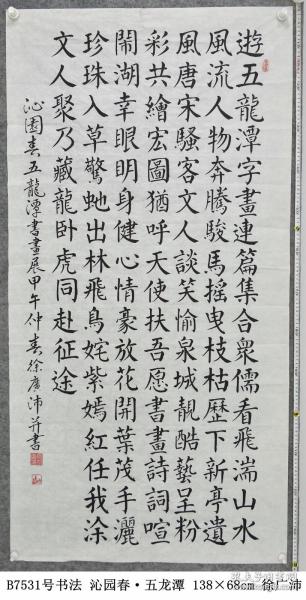 遊五龍潭字畫連篇集合衆儒看飛湍山水
風流人物奔騰駿馬搖曳枝枯歷下新亭遺
風唐宋騷客文人談笑愉泉城靚酷藝呈粉
彩共繪宏圖猶呼天使扶吾愿書畫詩詞喧
鬧湖幸眼明身健心情豪放花開葉茂手灑
珍珠入草驚虵出林飛鳥姹紫嫣紅任我涂
文人聚乃藏龍卧虎同赴征途
沁園春五龍潭書畫展甲午仲春徐廣沛并書
B7531号书法 沁园春·五龙潭 138×68cm 徐广沛